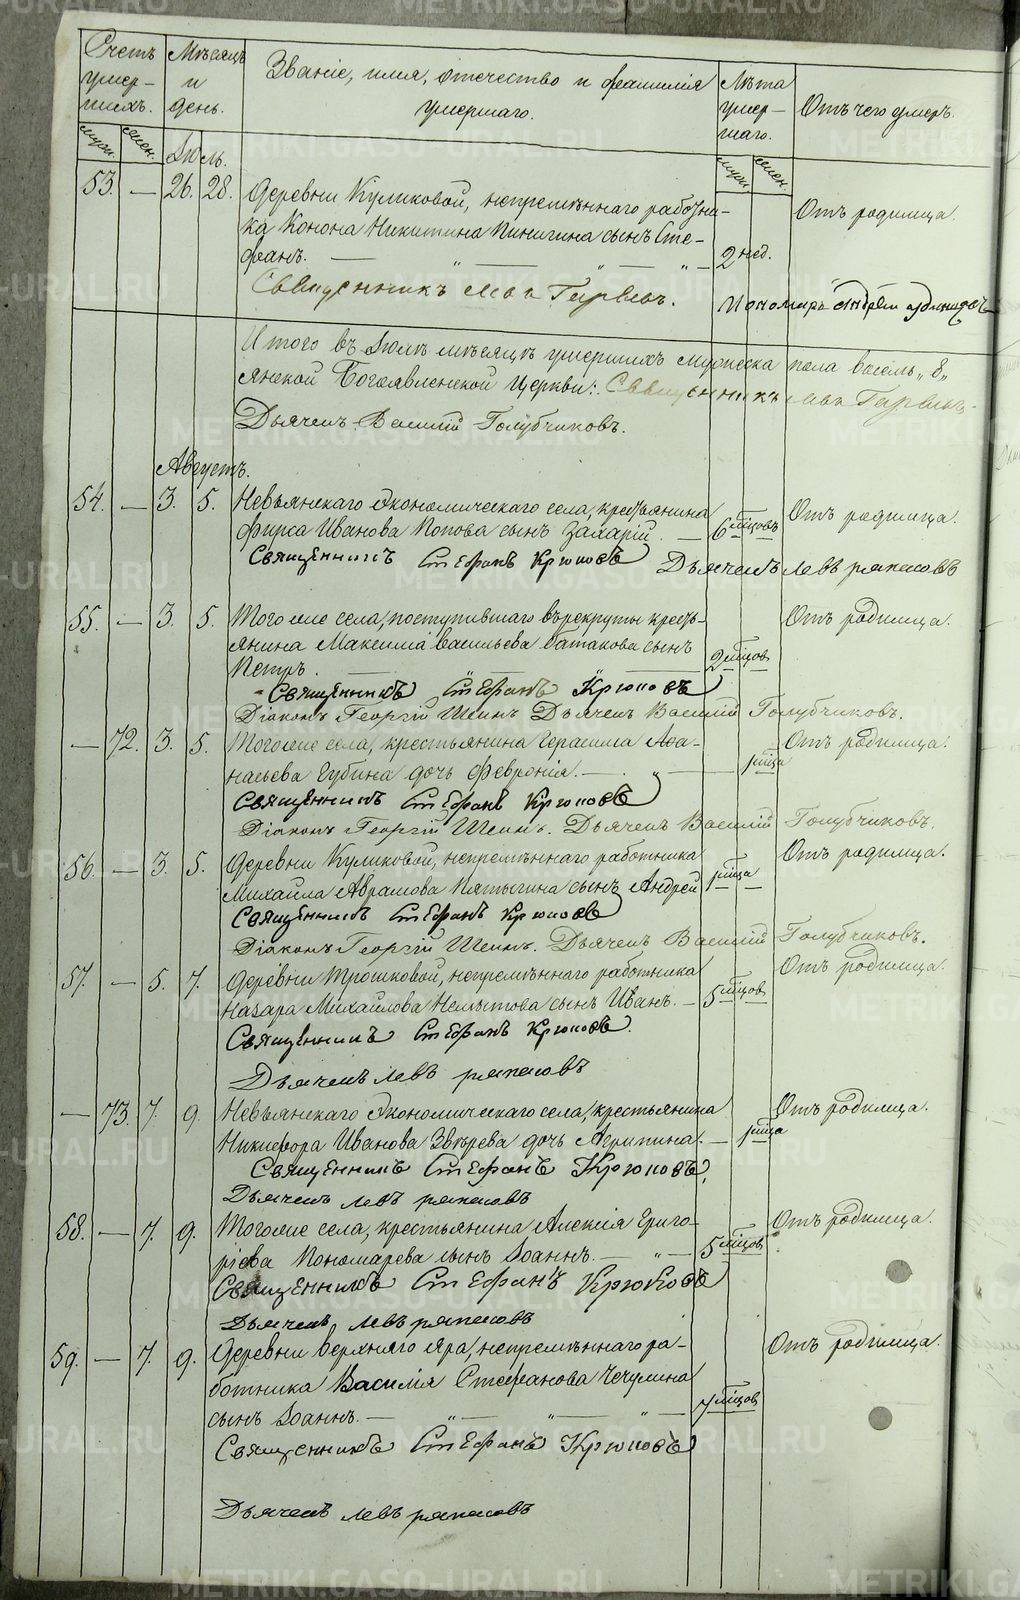 METRIKI.GASO-URAL.RU
Счетъ умер-шихъ.
Мѣсяцъ и день.
Званіе, имя, отечество и фамилія умершаго.
Лѣта умер-шаго.
Отъ чего умеръ.
муж.
жен.
Іюль.
муж.
жен.
53. — 26. 28. Деревни Куликовой, непремѣннаго работни- Отъ родимца.
ка Конона Никитина Пинигина сынъ Сте-
фанъ. — „ — „ — „ — 2 нед.
Священникъ Пономарь Андрей
Итого въ Іюлѣ мѣсяцѣ умершихъ мужеска пола восемь „8„
янской Богоявленской Церкви: Священникъ
Дьячекъ Василій Голубчиковъ.
Августъ.
54. — 3. 5. Невьянскаго Экономическаго села, крестьянина Отъ родимца.
Фирса Иванова Попова сынъ Захарій. — 6 мѣсцовъ
Священникъ Стефанъ Крюковъ Дьячекъ Левъ ряпасовъ
55. — 3. 5. Тогоже села, поступившаго въ рекруты кресть- Отъ родимца.
янина Максима Васильева Батакова сынъ
Петръ. — „ — 2 мѣсцов
Священникъ Стефанъ Крюковъ
Діаконъ Георгій Шеинъ Дьячекъ Василій Голубчиковъ.
— 72. 3. 5. Тогоже села, крестьянина Герасима Афа- Отъ родимца.
насьева Губина дочь Февронія. — „ — 1 мѣсца
Священникъ Стефанъ Крюковъ
Діаконъ Георгій Шеинъ. Дьячекъ Василій Голубчиковъ.
56. — 3. 5. Деревни Куликовой, непремѣннаго работника Отъ родимца.
Михаила Аврамова Пятыгина сынъ Андрей 1 мѣсца
Священникъ Стефанъ Крюковъ
Діаконъ Георгій Шеинъ. Дьячекъ Василій Голубчиковъ.
57. — 5. 7. Деревни Трошковой, непремѣннаго работника Отъ родимца.
Назара Михайлова Немытова сынъ Иванъ. — 5 мѣсцов
Священникъ Стефанъ Крюковъ.
Дьячекъ Левъ ряпасовъ
— 73. 7. 9. Невьянскаго Экономическаго села, крестьянина Отъ родимца.
Никифора Иванова Звѣрева дочь Агрипина. — 1 мѣсца
Священникъ Стефанъ Крюковъ,
Дьячекъ Левъ ряпасовъ
58. — 7. 9. Тогоже села, крестьянина Алексія Григо- Отъ родимца.
рьева Пономарева сынъ Іоаннъ. — „ — 5 мѣсцов.
Священникъ Стефанъ Крюковъ
Дьячекъ Левъ ряпасовъ
59. — 7. 9. Деревни Верхняго Яра, непремѣннаго ра- Отъ родимца.
ботника Василія Стефанова Чечулина
сынъ Іоаннъ. — „ — „ — „ — 7 мѣсцов
Священникъ Стефанъ Крюковъ
Дьячекъ Левъ ряпасовъ